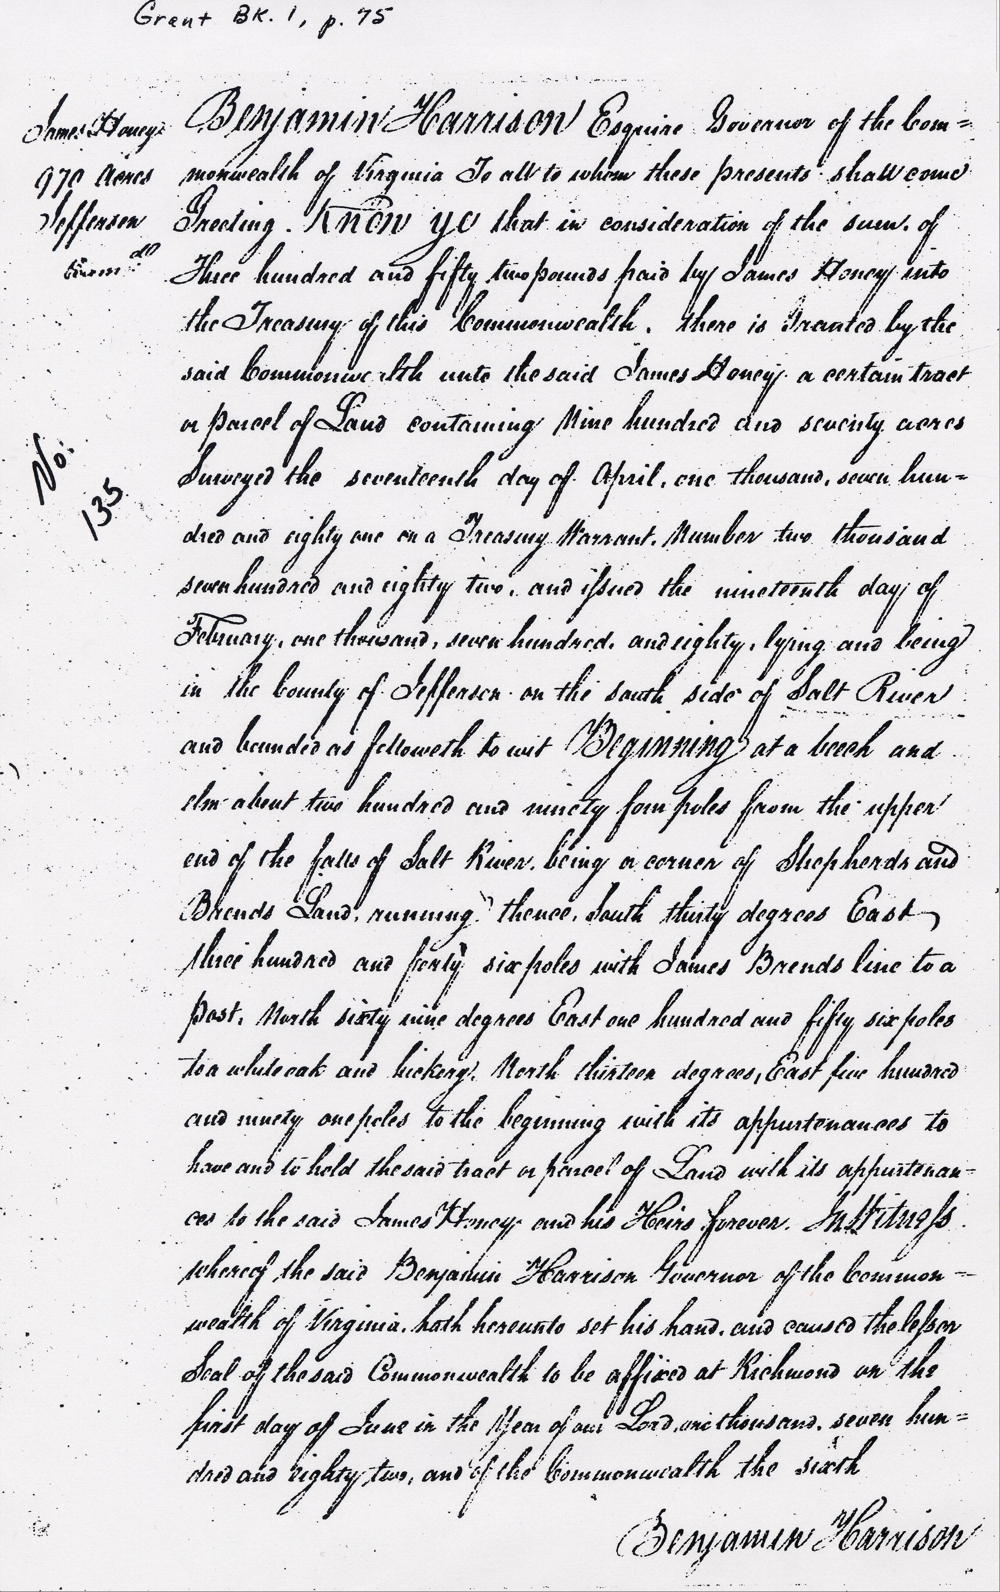 Grant Bk. 1, p. 75
James Honey
970 Acres
Jefferson
No.
135
Benjamin Harrison Esquire Governor of the Com=
monwealth of Virginia To all to whom these presents shall come
Greeting. Know ye that in consideration of the sum of
Three hundred and fifty two pounds paid by James Honey into
the Treasury of this Commonwealth. there is Granted by the
said Commonwealth unto the said James Honey a certain tract
or parcel of Land containing Nine hundred and seventy acres
Surveyed the seventeenth day of April, one thousand, seven hun=
dred and eighty one on a Treasury Warrant. Number two thousand
seven hundred and eighty two, and issued the nineteenth day of
February, one thousand, seven hundred, and eighty, lying and being
in the County of Jefferson on the south side of Salt River
and bounded as followeth to wit Beginning at a beech and
elm about two hundred and ninety four poles from the upper
end of the falls of Salt River. being a corner of Shepherds and
Brends Land, running thence, South thirty degrees East
three hundred and forty six poles with James Brends line to a
post, North sixty nine degrees East one hundred and fifty six poles
to a white oak and hickory. North thirteen degrees, East five hundred
and ninety one poles to the beginning with its appurtenances to
have and to hold the said tract or parcel of Land with its appurtenan=
ces to the said James Honey and his Heirs forever. In Witness
whereof the said Benjamin Harrison Governor of the Common=
wealth of Virginia. hath hereunto set his hand, and caused the lesser
Seal of the said Commonwealth to be affixed at Richmond on the
first day of June in the Year of our Lord, one thousand, seven hun=
dred and eighty two, and of the Commonwealth the sixth
Benjamin Harrison